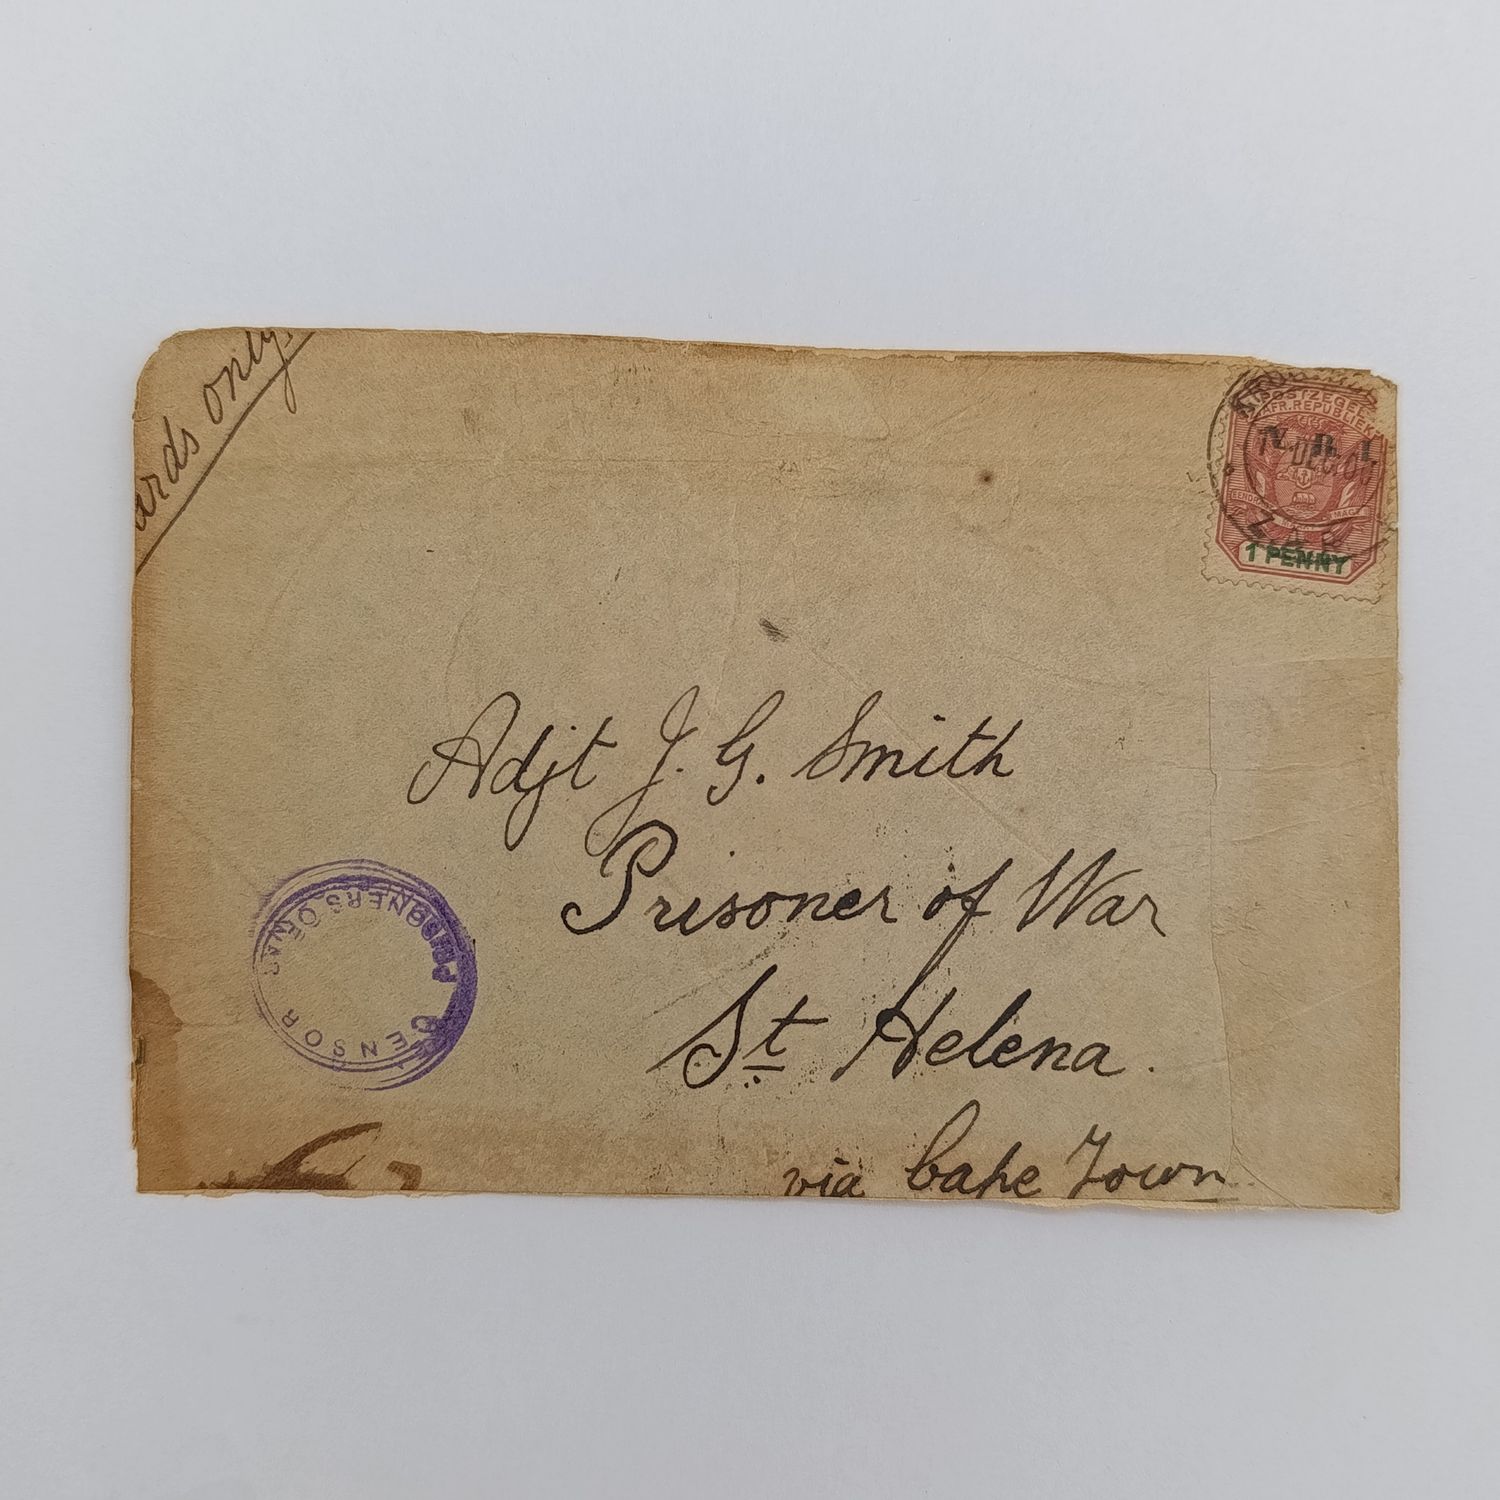 ards only.
POSTZEGEL
AFR. REPUBLIEK
V.R.I.
7 DEC 00
EENDR MAGT
Z.A.R.
1 PENNY
Adjt J. G. Smith
Prisoner of War
St Helena.
via Cape Town
CENSOR PRISONERS OF WAR